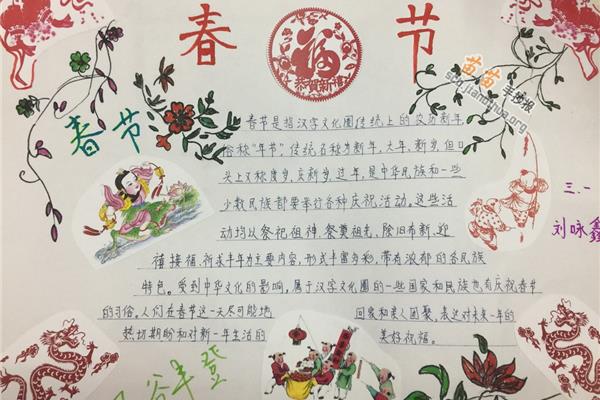 春 节
福
恭贺新禧
苗苗手抄报
shouchaobao.jianghua.org
春节
春节是指汉字文化圈传统上的农历新年,
俗称“年节”,传统名称为新年、大年、新岁,但口
头上又称度岁、庆新岁、过年,是中华民族和一些
少数民族都要举行各种庆祝活动。这些活
动均以祭祀祖神、祭奠祖先、除旧布新、迎
禧接福、祈求丰年为主要内容,形式丰富多彩,带有浓郁的各民族
特色。受到中华文化的影响,属于汉字文化圈的一些国家和民族也有庆祝春节
的习俗。人们在春节这一天尽可能地 回家和亲人团聚,表达对未来一年的
热切期盼和对新一年生活的 美好祝福。
三.一
刘咏鑫
谷丰登